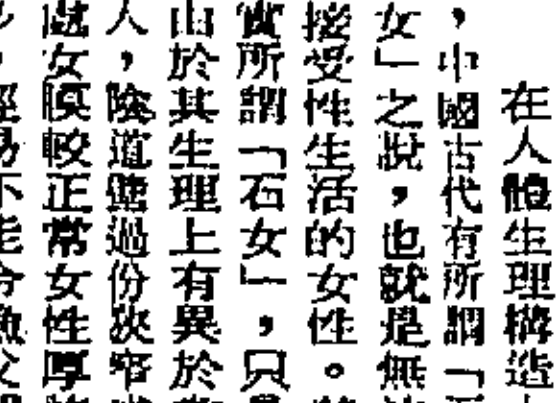 在人體生理構造
，中國古代有所謂「
女」之說，也就是無
接受性生活的女性。
實所謂「石女」，只
由於其生理上有異於
人，陰道過份狹窄
處女膜較正常女性厚